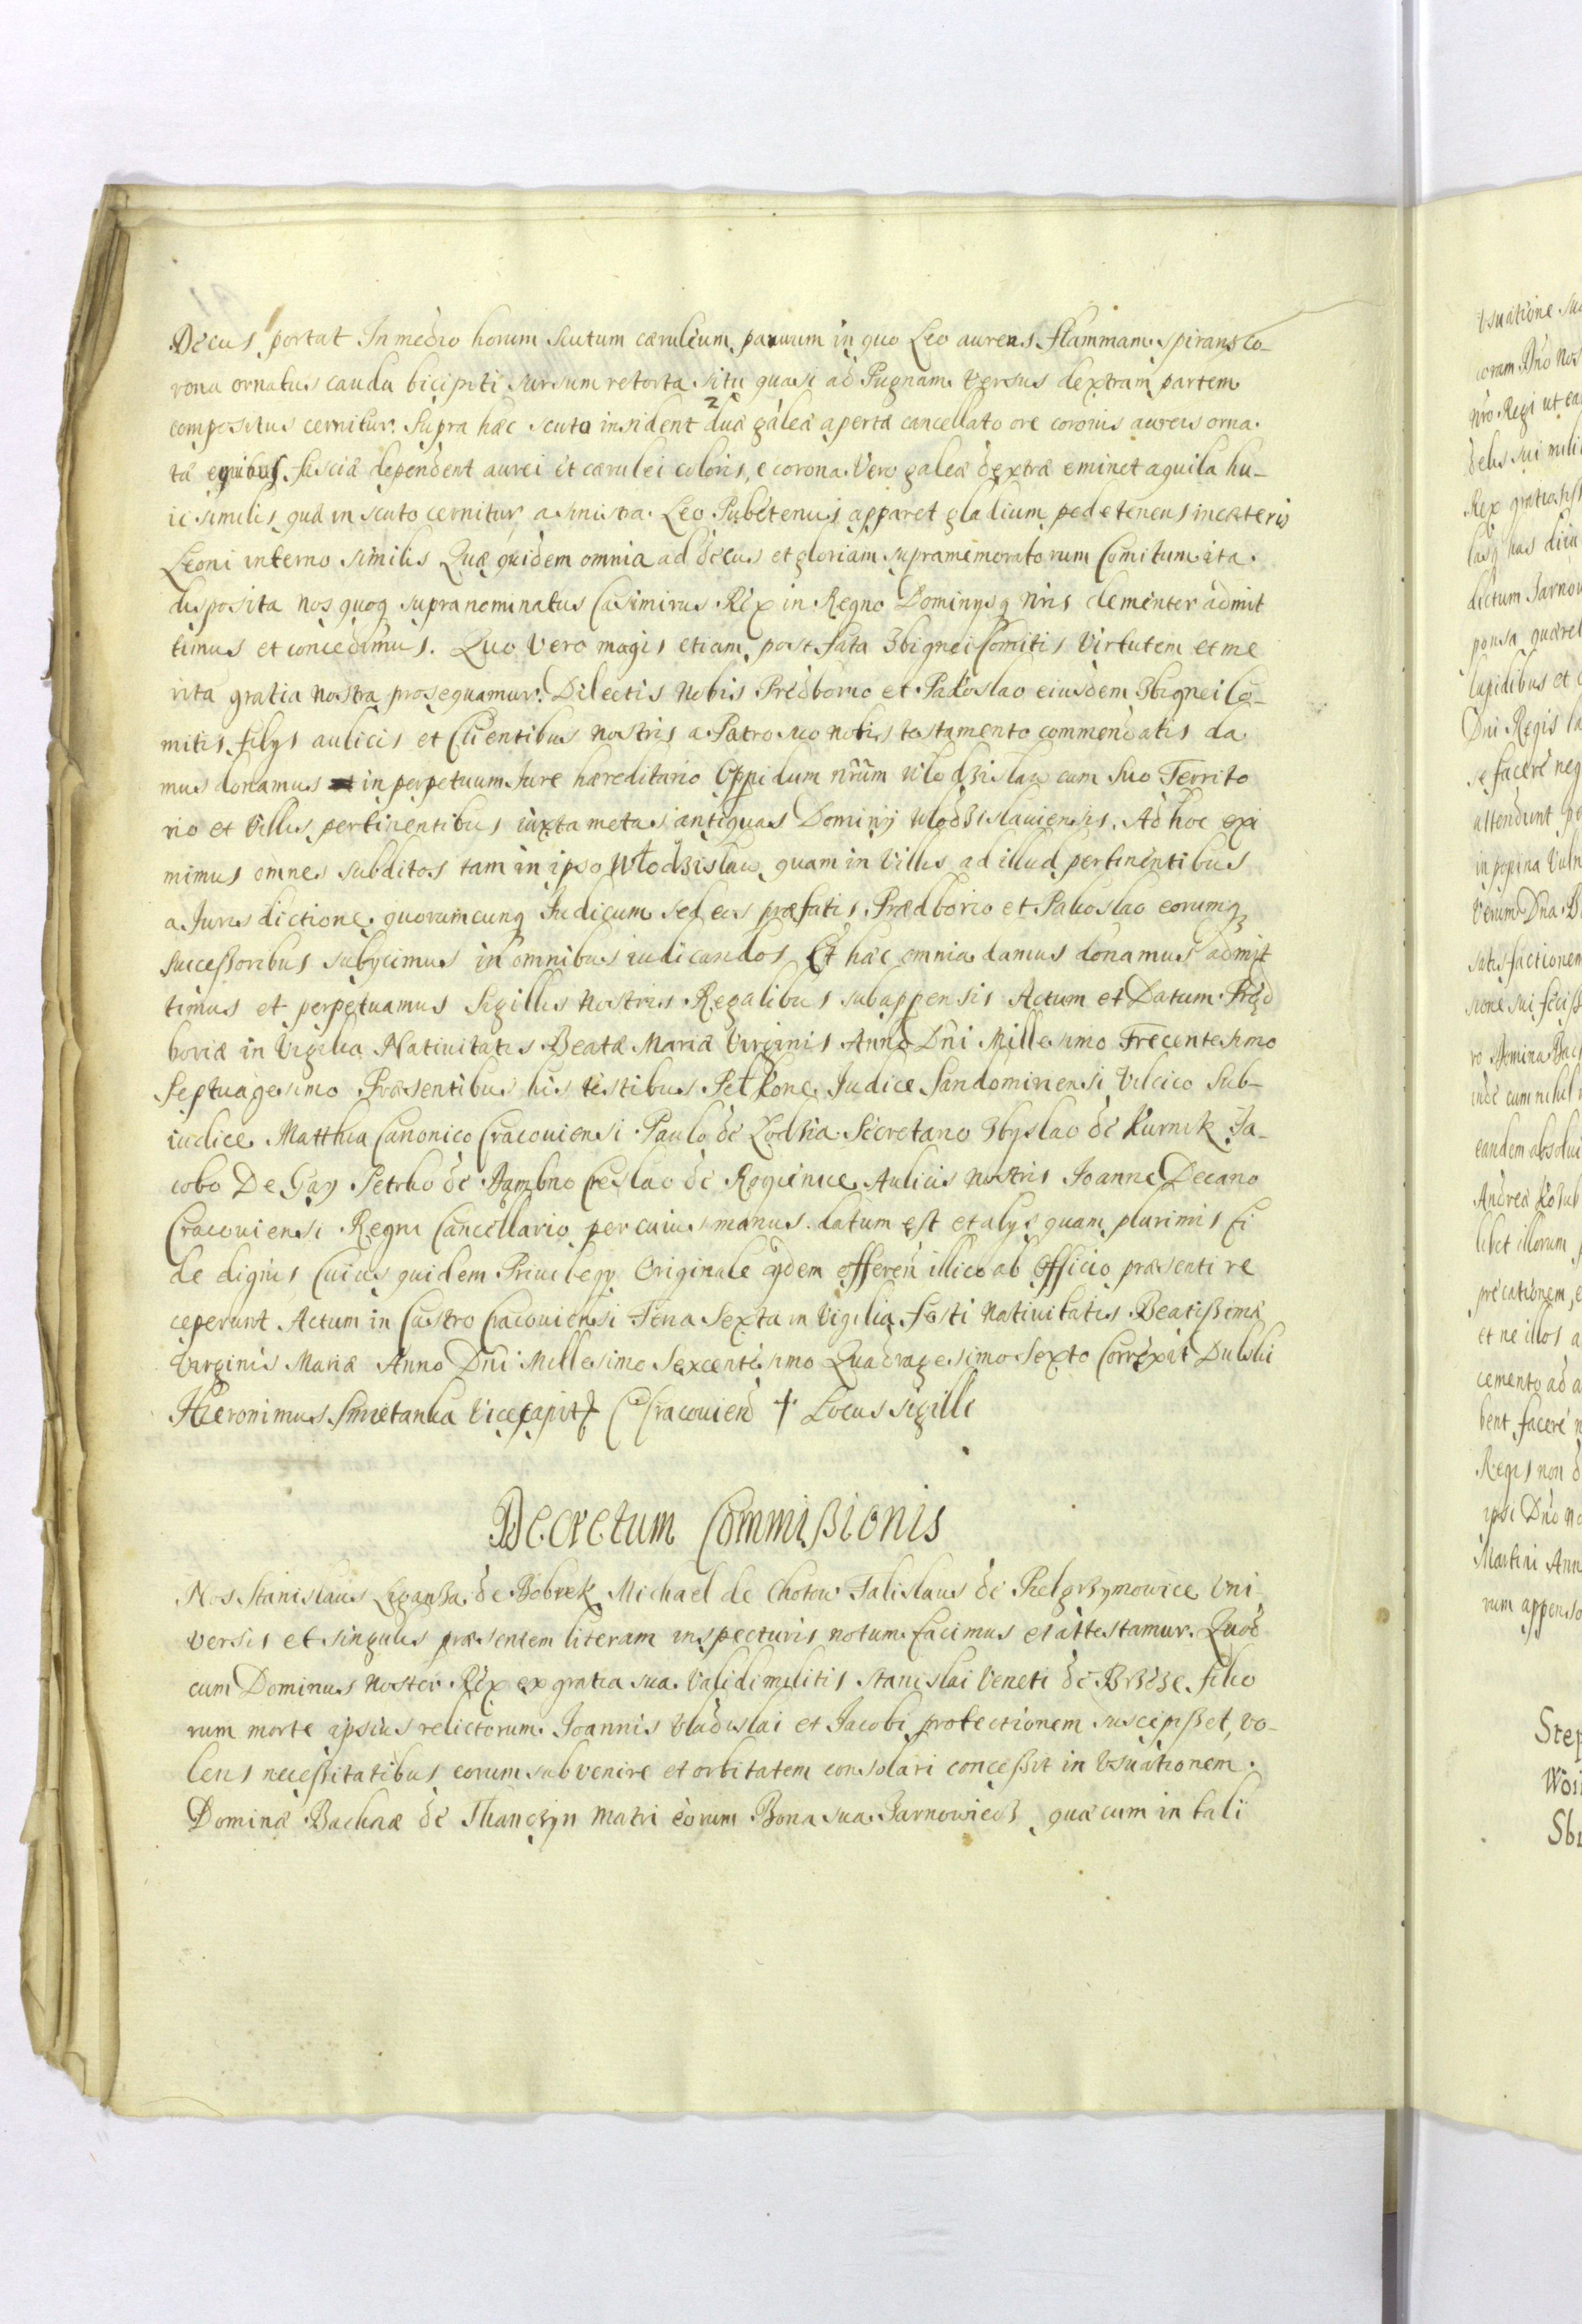 Decus portat In medio horum scutum cæruleum paruum in quo Leo aureus flammam spirans co-
rona ornatus cauda bicipiti sursum retorta situ quasi ad Pugnam versus dextram partem
compositus cernitur. Supra hæc scuta insident 2 duæ galeæ apertæ cancellato ore coronis aureis orna.
tæ equibus fasciæ dependent aurei et cærulei coloris, e corona vero galeæ dextræ eminet aquila hu-
ic similis quæ in scuto cernitur a sinistra Leo Pubetenus apparet gladium pede tenens in cæteris
Leoni interno similis Quæ quidem omnia ad decus et gloriam supramemoratorum Comitum ita
disposita nos quoq supranominatus Casimirus Rex in Regno Dominysq nris clementer admit
timus et concedimus. Quo vero magis etiam post fata Zbignei Comitis Virtutem et me
rita gratia nostra prosequamur. Dilectis nobis Predborio et Pakoslao eiusdem Zbignei Co-
mitis filys aulicis et Clientibus nostris a Patre suo nobis testamento commendatis da
mus donamus in perpetuum Jure hæreditario Oppidum nrūm Wlodzislaw cum suo Territo
rio et villis pertinentibus iuxta metas antiquas Dominij Wlodzislauiensis. Ad hoc exi
mimus omnes subditos tam in ipso Wlodzislaw quam in Villis ad illud pertinentibus
a Jurisdictione quorumcunq Judicum sed eis præfatis Prædborio et Pakoslao eorumq
successoribus subycimus in omnibus iudicandos Et hæc omnia damus donamus admit
timus et perpetuamus Sigillis nostris Regalibus subappensis Actum et Datum Præd
boriæ in Vigilia Natiuitatis Beatæ Mariæ Virginis Anno Dni Millesimo Trecentesimo
Septuagesimo Præsentibus his testibus Petkone Judice Sandomiriensi Vilcico Sub-
iudice Matthia Canonico Cracouiensi Paulo de Lodzia Secretario Zbyslao de Kurnik Ja-
cobo De Gay Petrko de Jambno Ceslao de Rogienice Aulicis nostris Joanne Decano
Cracouiensi Regni Cancellario per cuius manus datum est et alys quam plurimis fi
de dignis Cuius quidem Priuilegy Originale ydem offeren illico ab Officio præsenti re
ceperunt Actum in Castro Cracouiensi Feria Sexta in Vigilia festi Natiuitatis Beatissimæ
Virginis Mariæ Anno Dni Millesimo Sexcentesimo Quadragesimo Sexto Correxit Dulski
Hieronimus Smietanka Vicecapit C Cracouien † Locus sigilli
Decretum Commissionis
Nos Stanislaus Ligansa de Bobrek Michael de Chotow Falislaus de Pielgrzymowice Vni-
versis et singulis præsentem literam inspecturis notum facimus et attestamur. Quod
cum Dominus Noster Rex ex gratia sua Validi militis Stanislai Veneti de Brzeze filio
rum morte ipsius relictorum Joannis Vladislai et Jacobi protectionem suscepisset, vo-
lens necessitatibus eorum subvenire et orbitatem consolari concessit in Vsuationem
Dominæ Bachnæ de Thanczyn matri eorum Bona sua Jarnowiecz quæ cum in tali